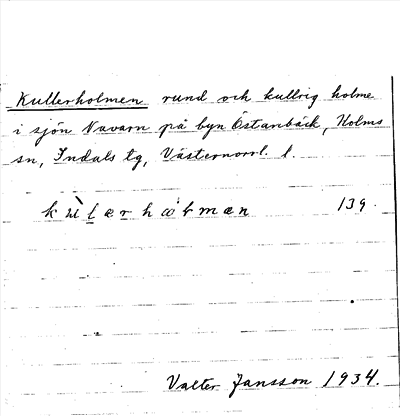 Kullerholmen rund och kullrig holme
i sjön Navarn på byn Östanbäck, Holms
sn, Indals tg, Västernorrl. l.
139.
Valter Jansson 1934.